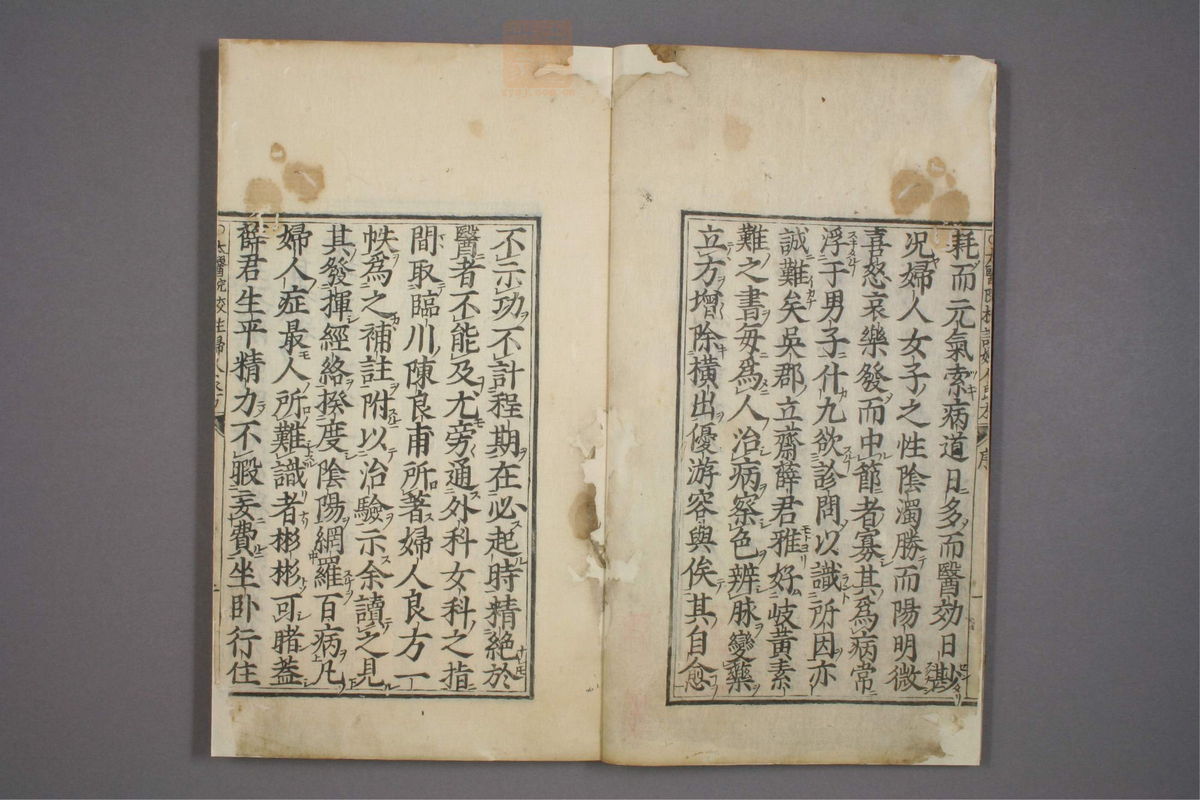 耗而元氣索病道日多而醫効日尠
况婦人女子之性陰濁勝而陽明微
喜怒哀樂發而中節者寡其爲病常
浮于男子什九欲診問以識所因亦
誠難矣吳郡立齋薛君雅好岐黃素
難之書每爲人治病察色辨脉變藥
立方增除橫出優游容與俟其自愈
不示功不計程期在必起時精絶於
醫者不能及尤旁通外科女科之指
間取臨川陳良甫所著婦人良方一
帙爲之補註附以治驗示余讀之見
其發揮經絡揆度陰陽網羅百病凡
婦人症最人所難識者彬彬可睹葢
薛君生平精力不暇妄費坐卧行住